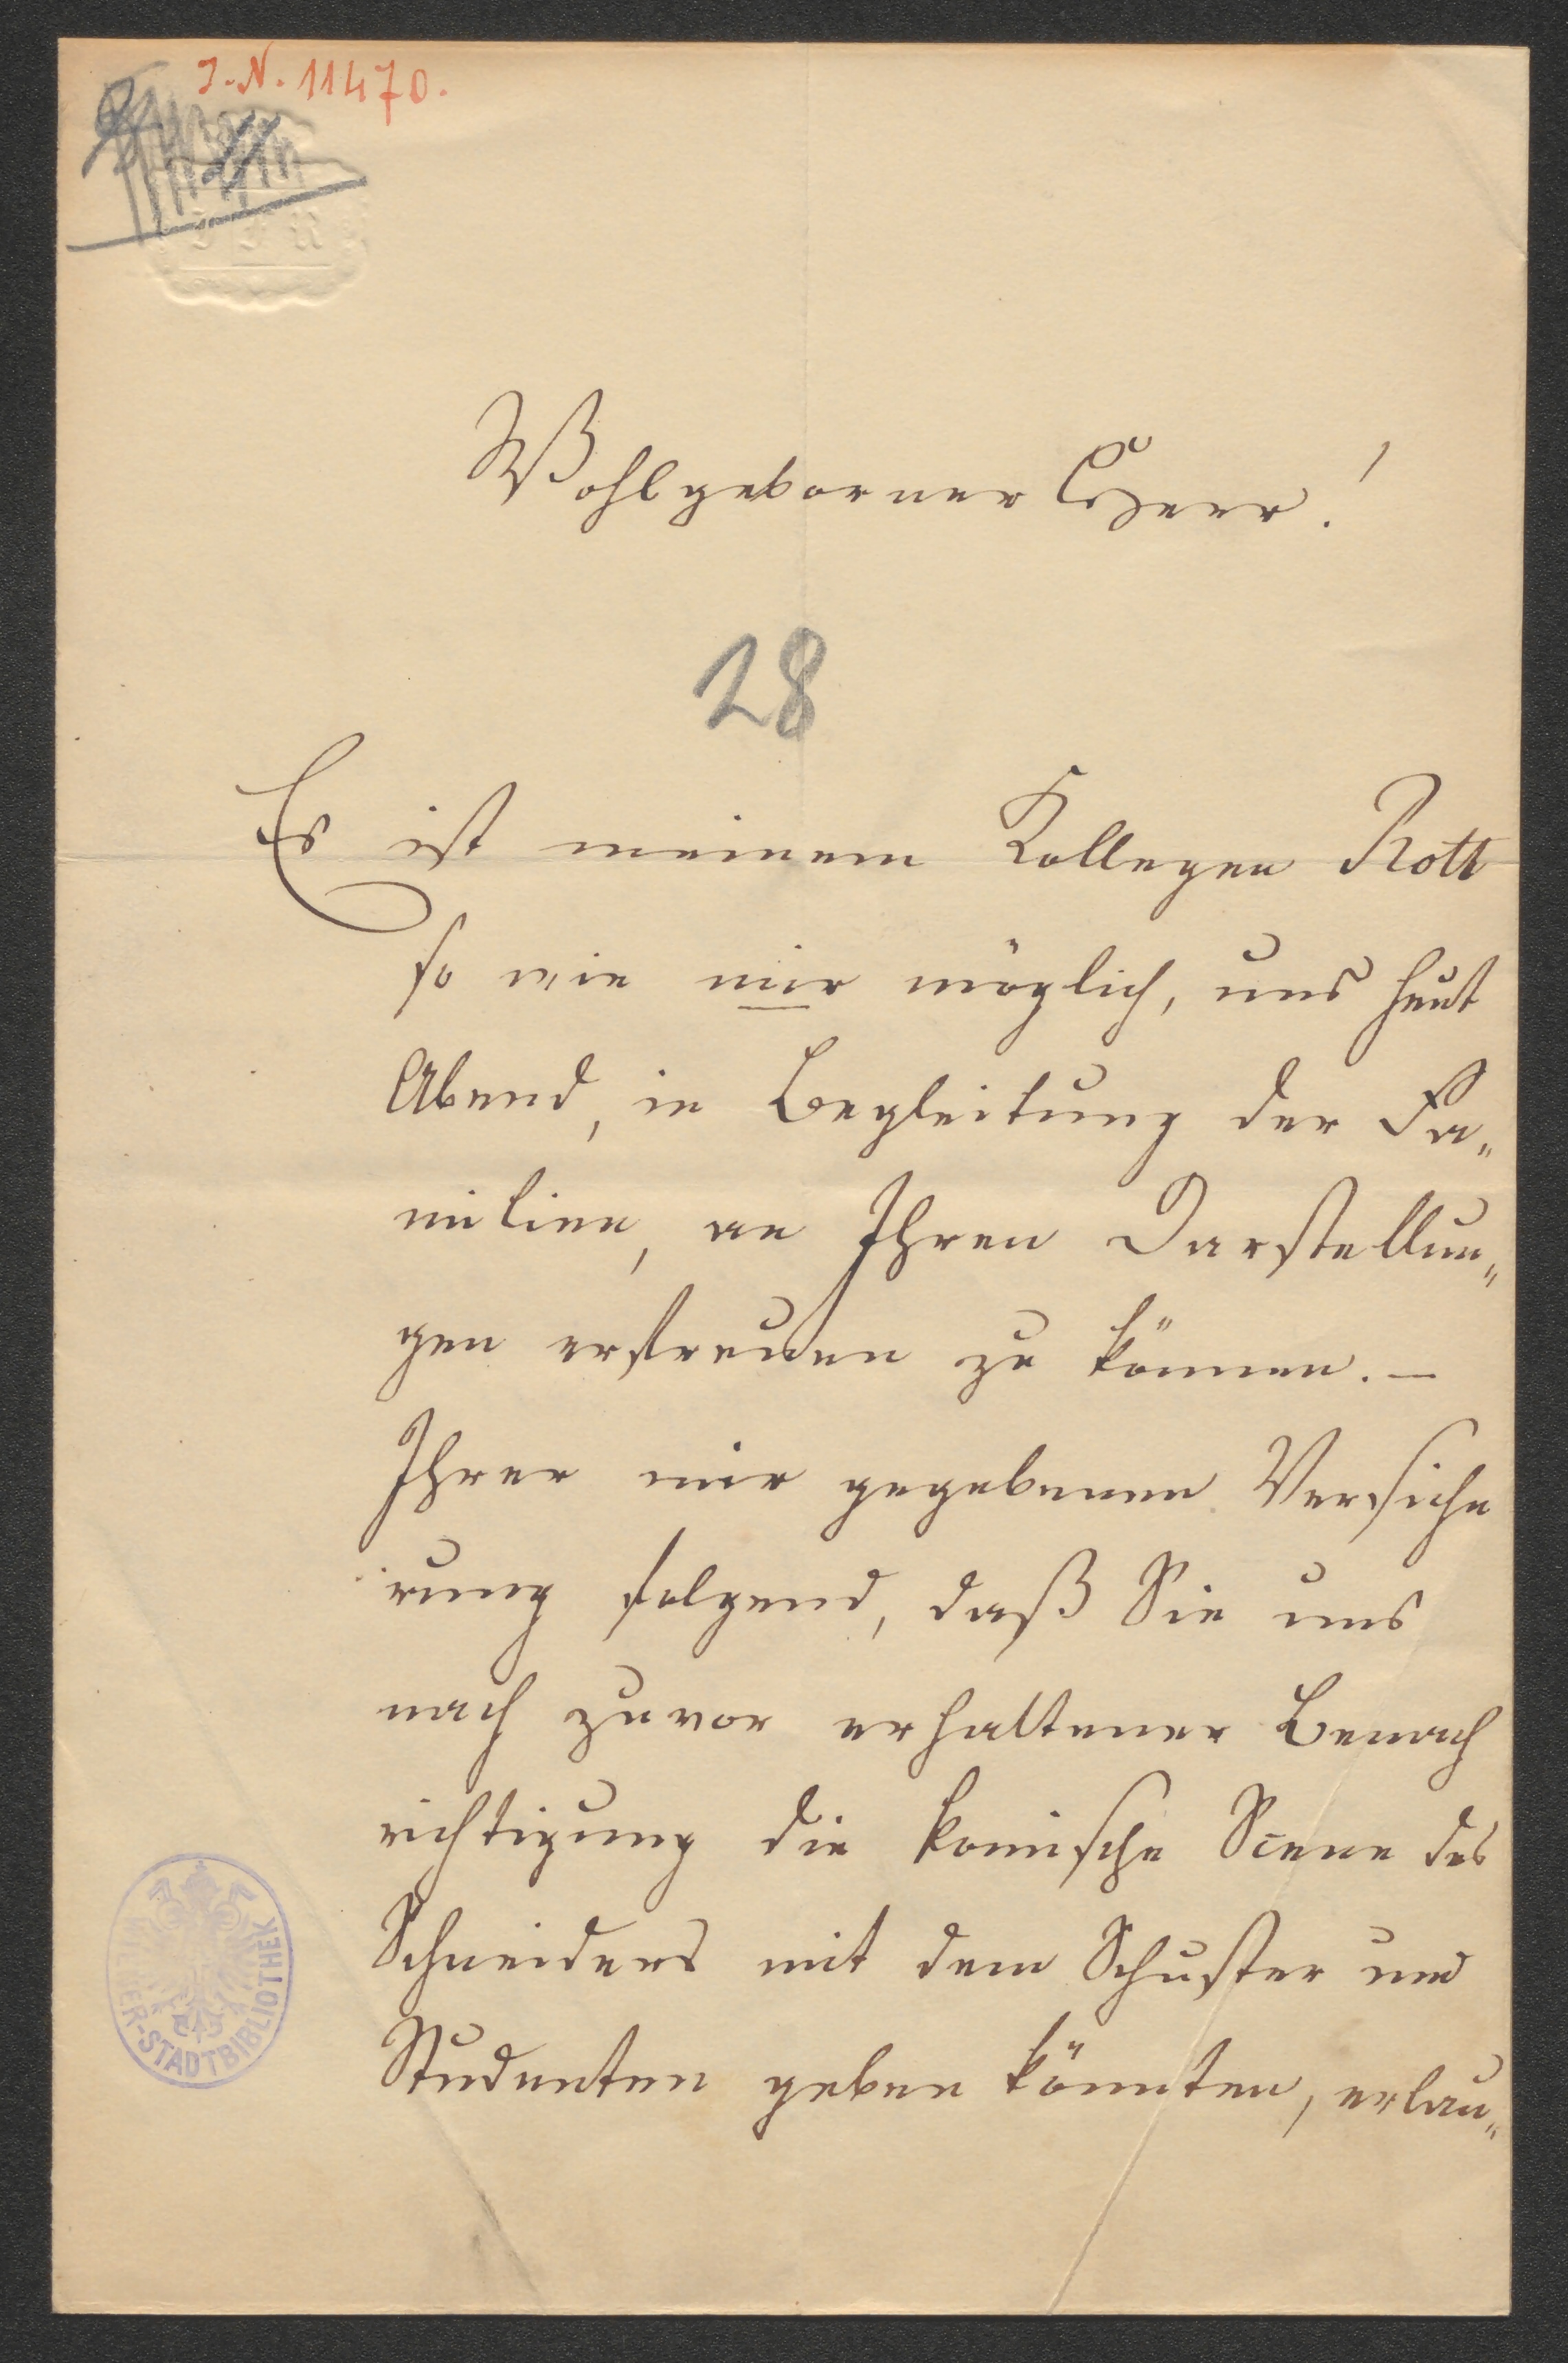 J.-N. 11470.
Wohlgeborner Herr!
28
Es ist meinem Kollegen Rott
so wie mir möglich, uns heut
Abend, in Begleitung der Fa„
milien, an Ihren Darstellun„
gen erfreuen zu können. —
Ihrer mir gegebenen Versiche
rung folgend, daß Sie uns
nach zuvor erhaltener Benach
richtigung die komische Scene des
Schneiders mit dem Schuster und
Studenten geben könnten, erlau„
ER-STADTBIBLIOTHEK